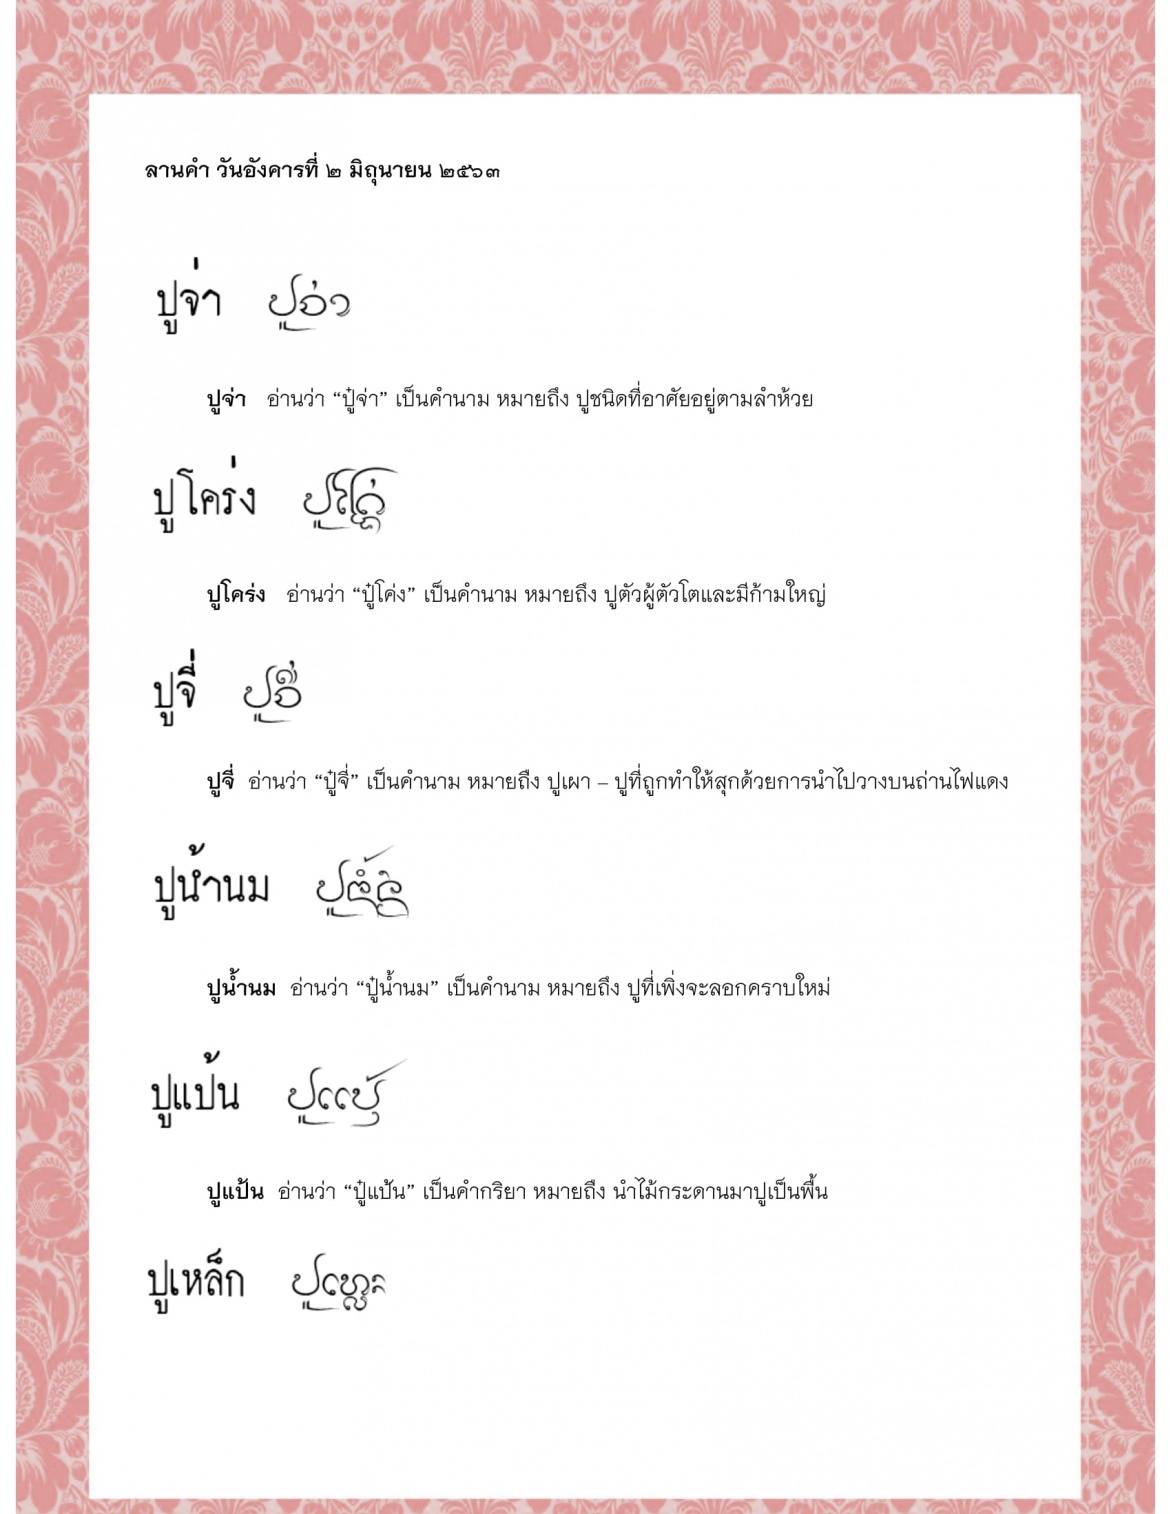 ลานคำ วันอังคารที่ ๒ มิถุนายน ๒๕๖๓
ปูจ่า
ปูจ่า อ่านว่า “ปู๋จ่า” เป็นคำนาม หมายถึง ปูชนิดที่อาศัยอยู่ตามลำห้วย
ปูโคร่ง
ปูโคร่ง อ่านว่า “ปู๋โค่ง” เป็นคำนาม หมายถึง ปูตัวผู้ตัวโตและมีก้ามใหญ่
ปูจี่
ปูจี่ อ่านว่า “ปู๋จี่” เป็นคำนาม หมายถึง ปูเผา – ปูที่ถูกทำให้สุกด้วยการนำไปวางบนถ่านไฟแดง
ปูน้ำนม
ปูน้ำนม อ่านว่า “ปู๋น้ำนม” เป็นคำนาม หมายถึง ปูที่เพิ่งจะลอกคราบใหม่
ปูแป้น
ปูแป้น อ่านว่า “ปู๋แป้น” เป็นคำกริยา หมายถึง นำไม้กระดานมาปูเป็นพื้น
ปูเหล็ก